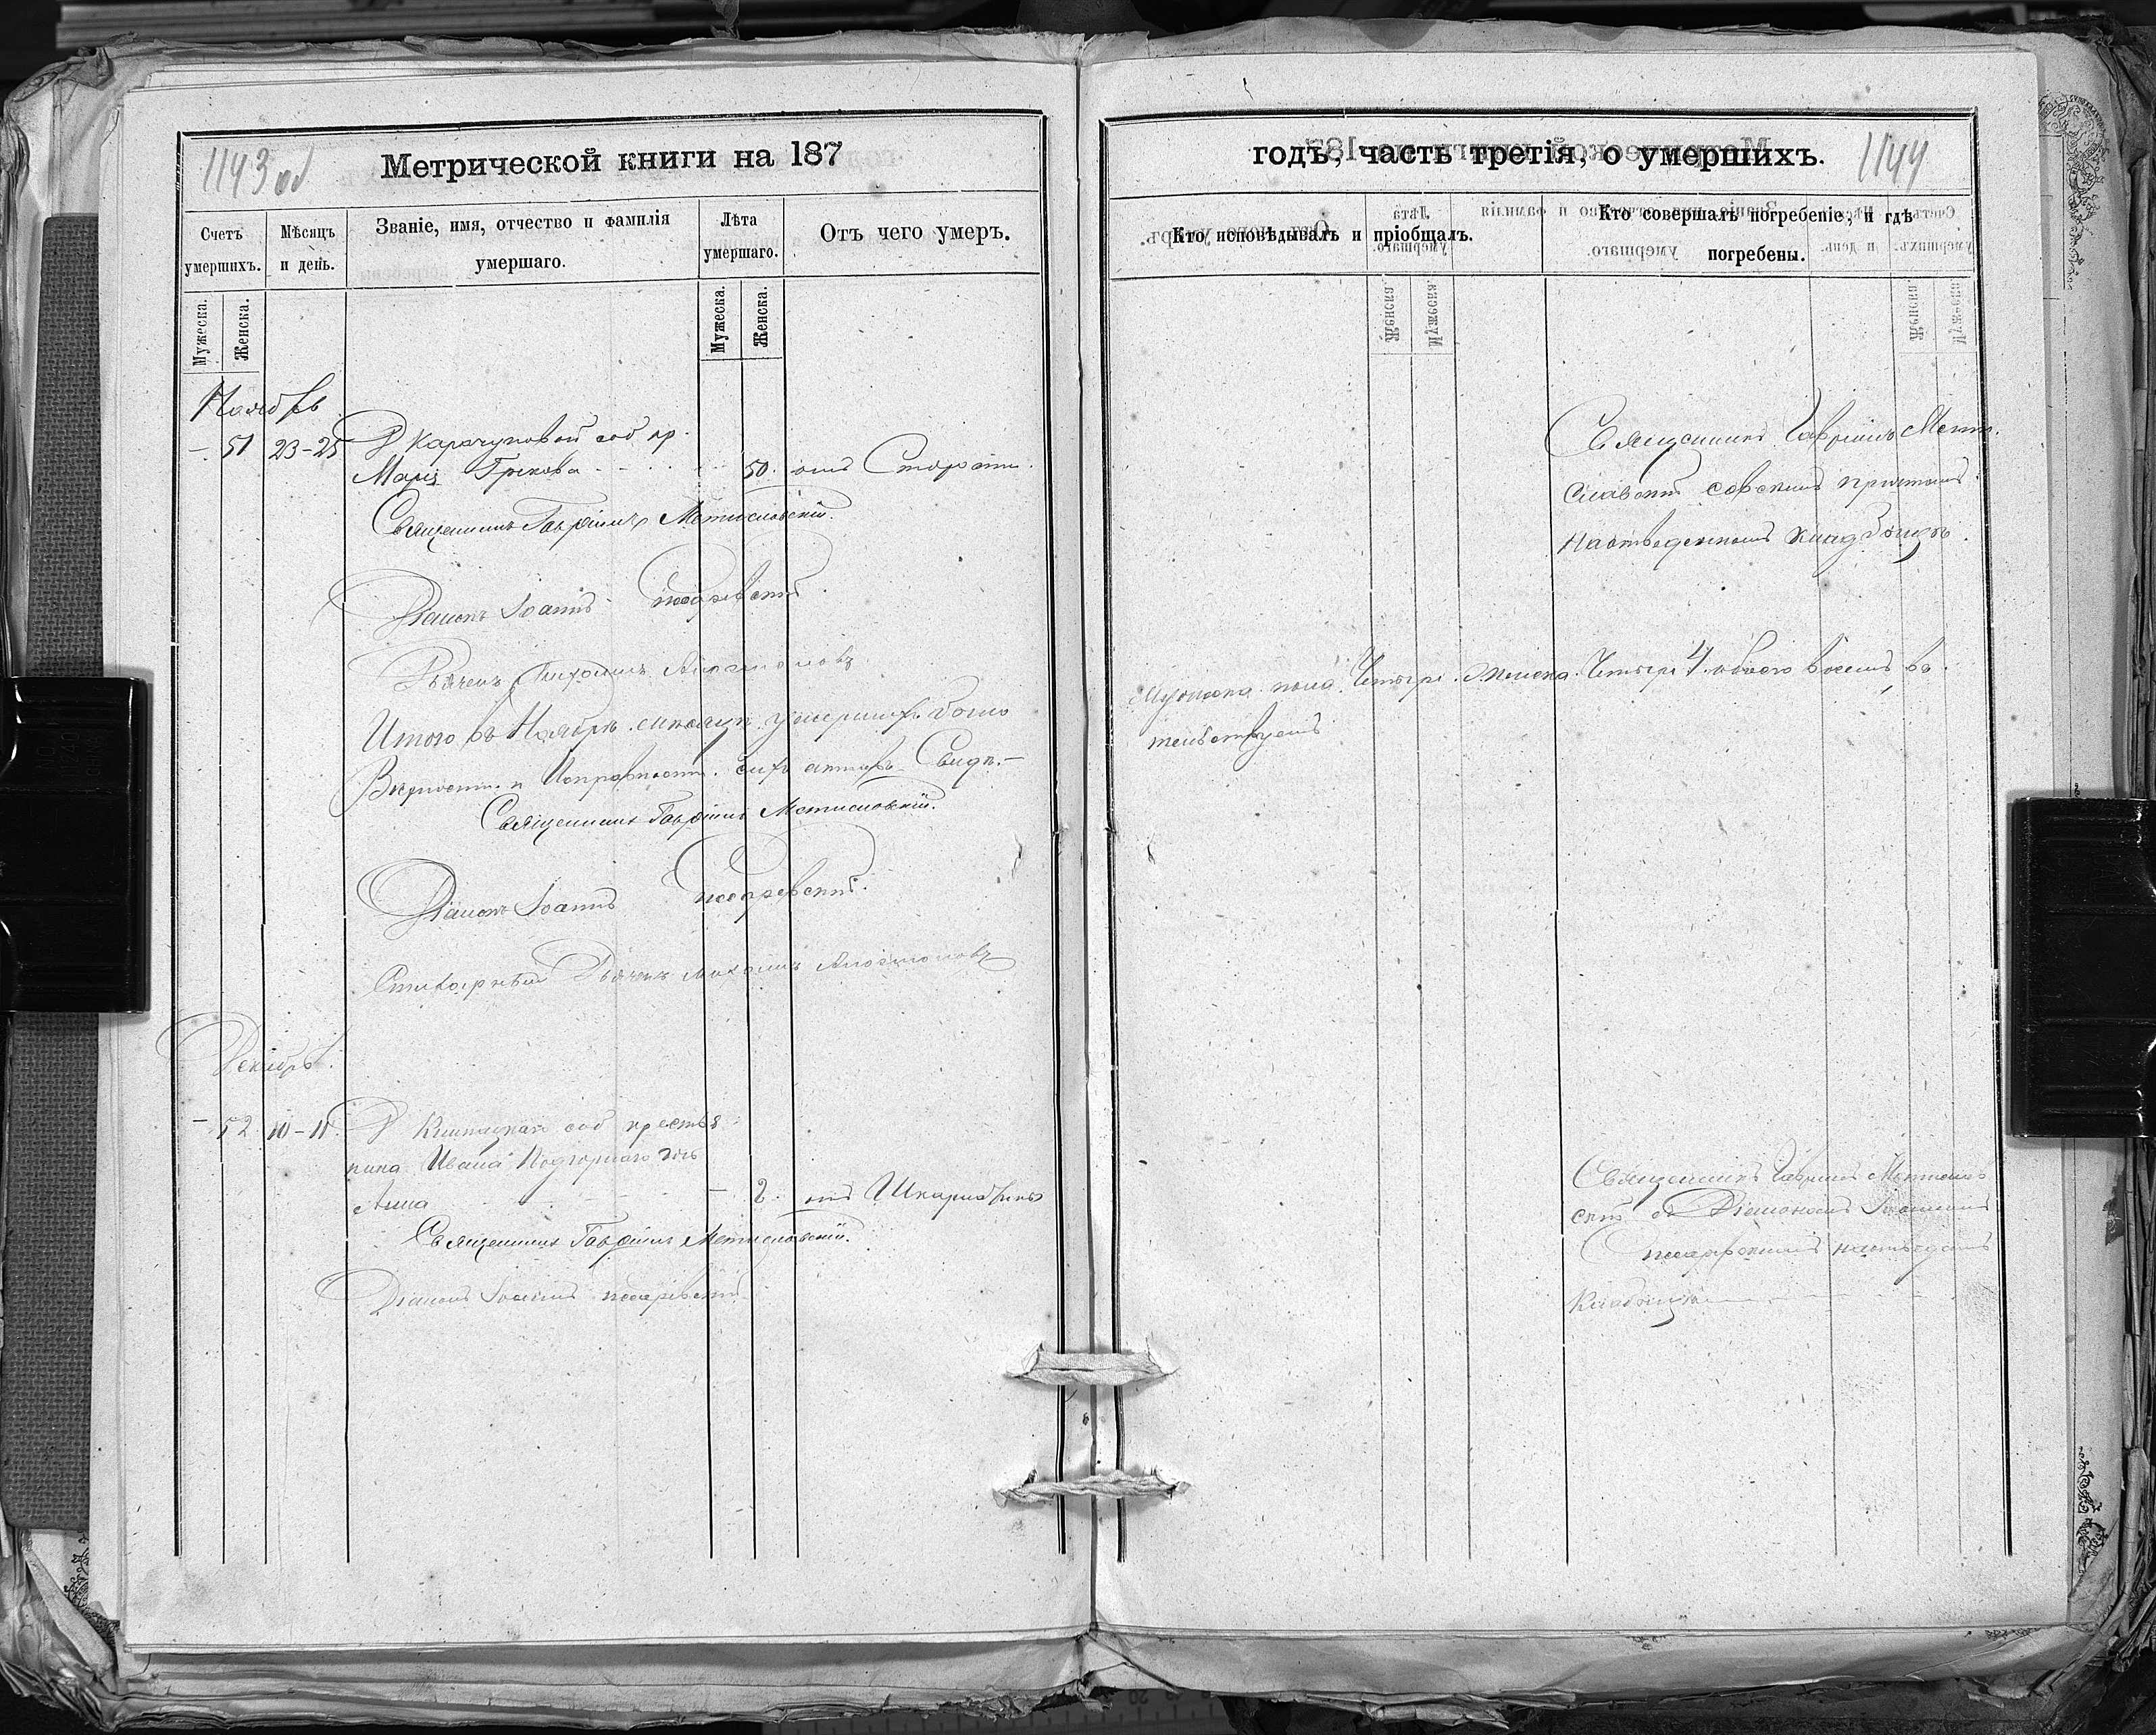 1143 об
Метрической книги на 187
Счетъ умершихъ.
Мѣсяцъ и день.
Званіе, имя, отчество и фамилія умершаго.
Лѣта умершаго.
Отъ чего умеръ.
Мужеска.
Женска.
Мужеска.
Женска.
Ноябрь
- 51 23-25 Д Карачуновой соб кр
Марія Грекова 50. отъ Старости.
Священникъ Гавріилъ Мстиславскій.
Діаконъ Іоаннъ
Дьячекъ
Итого въ Ноябрѣ мѣсяцѣ умершихъ было
Вѣрность и Исправность сихъ актовъ Свидѣ-
Священникъ Гавріилъ Мстиславскій.
Діаконъ Іоаннъ
Стихарный Дьячекъ
Декабрь
- 52 10-11 Д соб крестья
нина Ивана Подгорнаго дочь
Анна - 2. отъ Шкарлатины
Священникъ Гавріилъ Мстиславскій.
Діаконъ Іоаннъ
годъ, часть третія, о умершихъ.
1144
Кто исповѣдывалъ и пріобщалъ.
Кто совершалъ погребеніе, и гдѣ погребены.
Священникъ Гавріилъ Мсти-
славскій со всѣмъ причтомъ
на отведенномъ кладбищѣ.
Мужеска пола Четыре Женска Четыре 4 обоего восемь
тельствуемъ
Священникъ Гавріилъ Мстислав
скій съ Діакономъ Іоанномъ
кладбищѣ